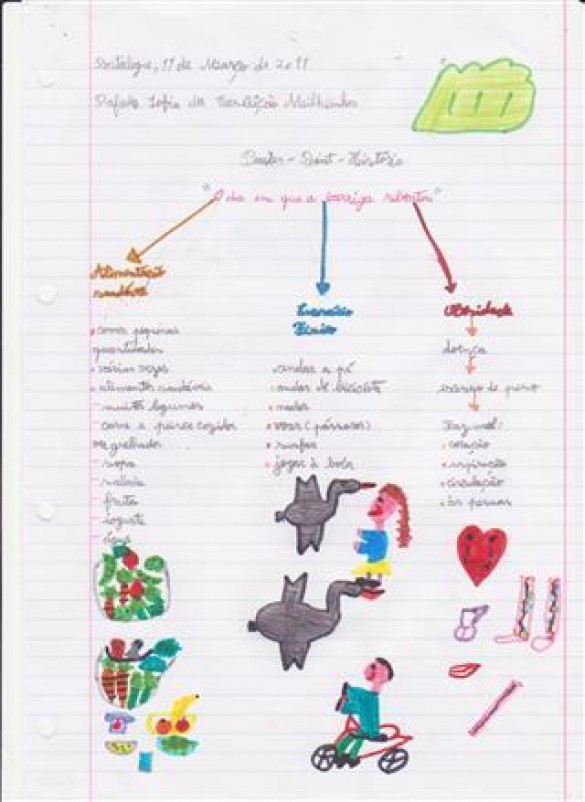 Portalegre, 17 de Março de 2011
Sofia da Milhinhos
Poster - Point - História
"O dia em que a barriga rebentou"
Alimentação
saudável
• comer pequenas
quantidades
• várias vezes
• alimentos saudáveis
- muitos legumes
- carne e peixe cozidos
ou grelhados
- sopa
- salada
- fruta
- iogurte
- água
Exercício
Físico
andar a pé
• andar de bicicleta
• nadar
• voar (pássaros)
• surfar
• jogar à bola
Obesidade
doença
excesso de peso
Faz mal:
• coração
• respiração
• circulação
• às pernas